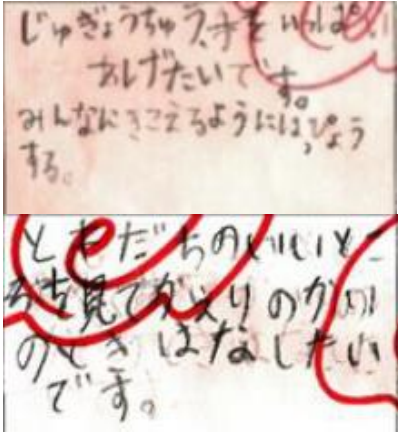 じゅぎょうちゅう、手をいっぱい
あげたいです。
みんなにきこえるようにはっぴょう
する。
ともだちのいいとこ
見てかえりのかい
のときはなしたい
です。